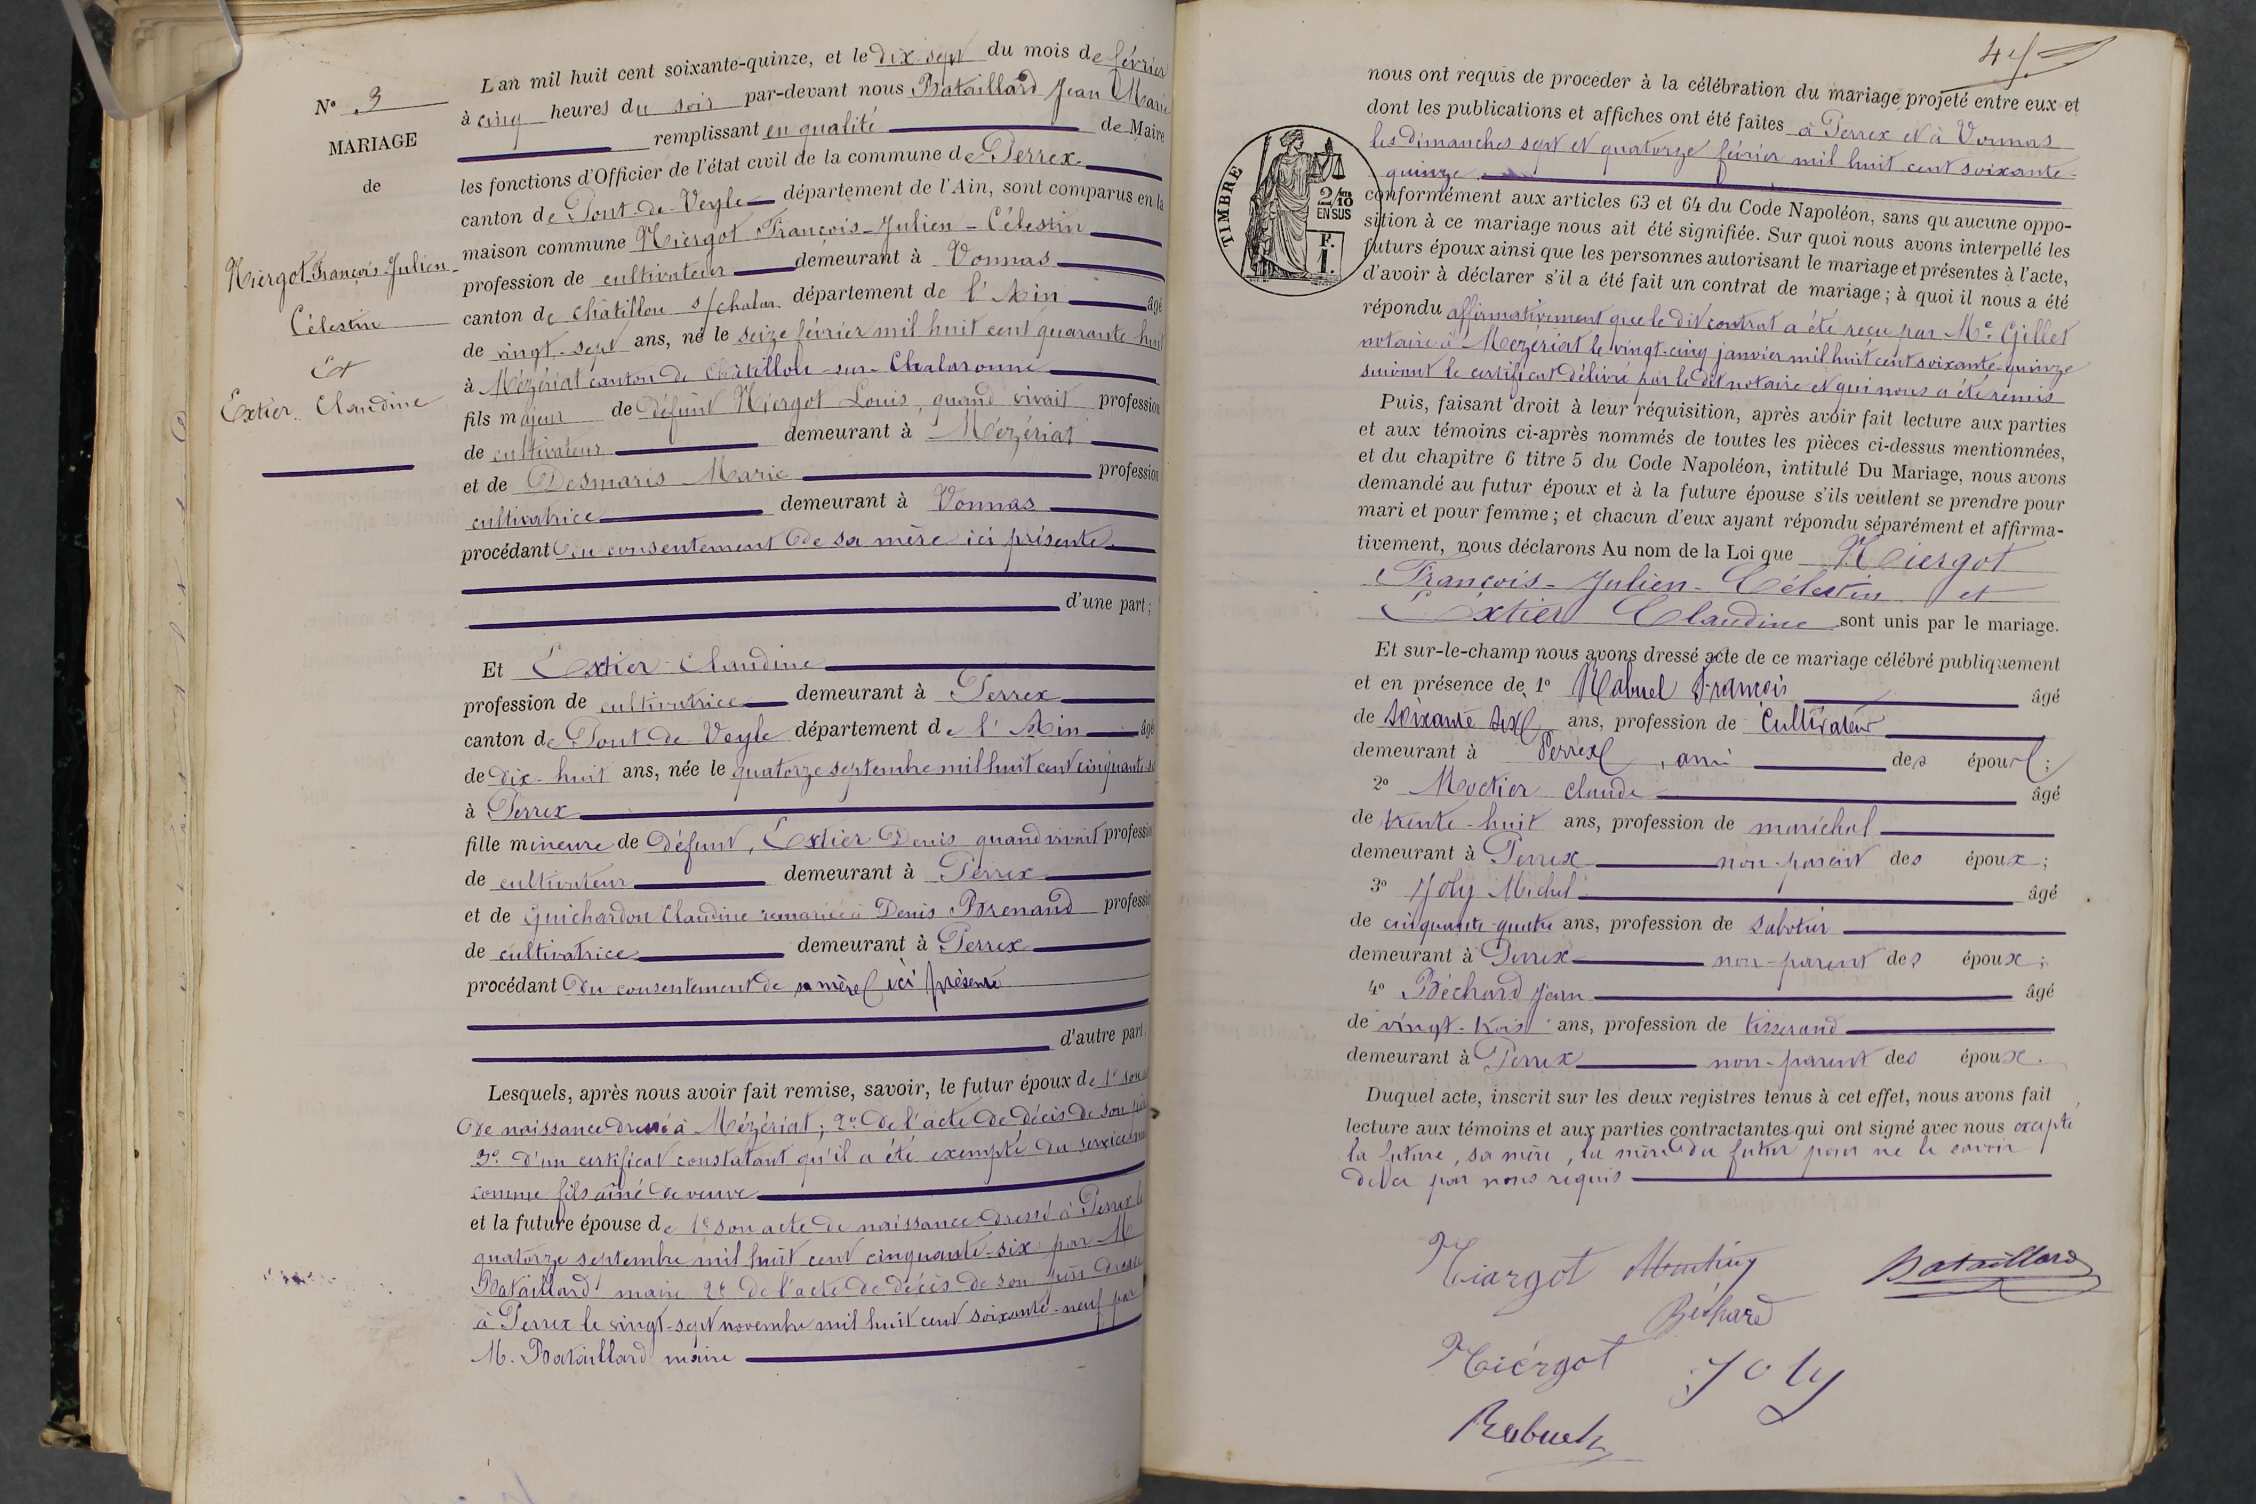 N° 3
MARIAGE
de
Niergot François Julien
Célestin
Et
Extier Claudine
L'an mil huit cent soixante-quinze, et le dix-sept du mois de février
à cinq heures du soir par-devant nous Bataillard Jean Marie
remplissant en qualité de Maire
les fonctions d'Officier de l'état civil de la commune de Perrex
canton de Pont-de-Veyle département de l'Ain, sont comparus en la
maison commune Niergot François-Julien-Célestin
profession de cultivateur demeurant à Vonnas
canton de Châtillon s/chalar. département de l'Ain âgé
de vingt-sept ans, né le seize février mil huit cent quarante-huit
à Mézériat canton de Châtillon-sur-Chalaronne
fils majeur de défunt Niergot Louis, quand vivait profession
de cultivateur demeurant à Mézériat
et de Desmaris Marie profession
cultivatrice demeurant à Vonnas
procédant du consentement de sa mère ici présente
d'une part;
Et Extier Claudine
profession de cultivatrice demeurant à Perrex
canton de Pont-de-Veyle département de l'Ain âgé
de dix-huit ans, née le quatorze septembre mil huit cent cinquante-six
à Perrex
fille mineure de défunt, Extier Denis quand vivait profession
de cultivateur demeurant à Perrex
et de Guichardon Claudine remariée à Denis Brenand profession
de cultivatrice demeurant à Perrex
procédant du consentement de sa mère ici présente
d'autre part
Lesquels, après nous avoir fait remise, savoir, le futur époux de 1° son acte
de naissance dressé à Mézériat; 2° de l'acte de décès de son père
3° d'un certificat constatant qu'il a été exempté du service
comme fils aîné de veuve
et la future épouse de 1° son acte de naissance dressé à Perrex le
quatorze septembre mil huit cent cinquante-six par M
Bataillard maire 2° de l'acte de décès de son père dressé
à Perrex le vingt-sept novembre mil huit cent soixante-neuf par
M. Bataillard maire
45
nous ont requis de proceder à la célébration du mariage projeté entre eux et
dont les publications et affiches ont été faites à Perrex et à Vonnas
les dimanches sept et quatorze février mil huit cent soixante-
quinze
TIMBRE
2/10
EN SUS
F.
1.
conformément aux articles 63 et 64 du Code Napoléon, sans qu'aucune oppo-
sition à ce mariage nous ait été signifiée. Sur quoi nous avons interpellé les
futurs époux ainsi que les personnes autorisant le mariage et présentes à l'acte,
d'avoir à déclarer s'il a été fait un contrat de mariage; à quoi il nous a été
répondu affirmativement que le dit contrat a été reçu par Me Gillet
notaire à Mézériat le vingt-cinq janvier mil huit cent soixante-quinze
suivant le certificat délivré par le dit notaire et qui nous a été remis
Puis, faisant droit à leur réquisition, après avoir fait lecture aux parties
et aux témoins ci-après nommés de toutes les pièces ci-dessus mentionnées,
et du chapitre 6 titre 5 du Code Napoléon, intitulé Du Mariage, nous avons
demandé au futur époux et à la future épouse s'ils veulent se prendre pour
mari et pour femme; et chacun d'eux ayant répondu séparément et affirma-
tivement, nous déclarons Au nom de la Loi que Niergot
François-Julien-Célestin et
Extier Claudine sont unis par le mariage.
Et sur-le-champ nous avons dressé acte de ce mariage célébré publiquement
et en présence de 1° Rabuel François âgé
de soixante six ans, profession de Cultivateur
demeurant à Perrex, ami des époux;
2° Moctier Claude âgé
de trente-huit ans, profession de maréchal
demeurant à Perrex non-parent des époux;
3° Joly Michel âgé
de cinquante-quatre ans, profession de sabotier
demeurant à Perrex non-parent des époux;
4° Béchard Jean âgé
de vingt-trois ans, profession de tisserand
demeurant à Perrex non-parent des époux.
Duquel acte, inscrit sur les deux registres tenus à cet effet, nous avons fait
lecture aux témoins et aux parties contractantes qui ont signé avec nous excepté
la future, sa mère, la mère du futur pour ne le savoir
de ce par nous requis
Niargot
Bataillard
Béchard
Niérgot Joly
Rabuel